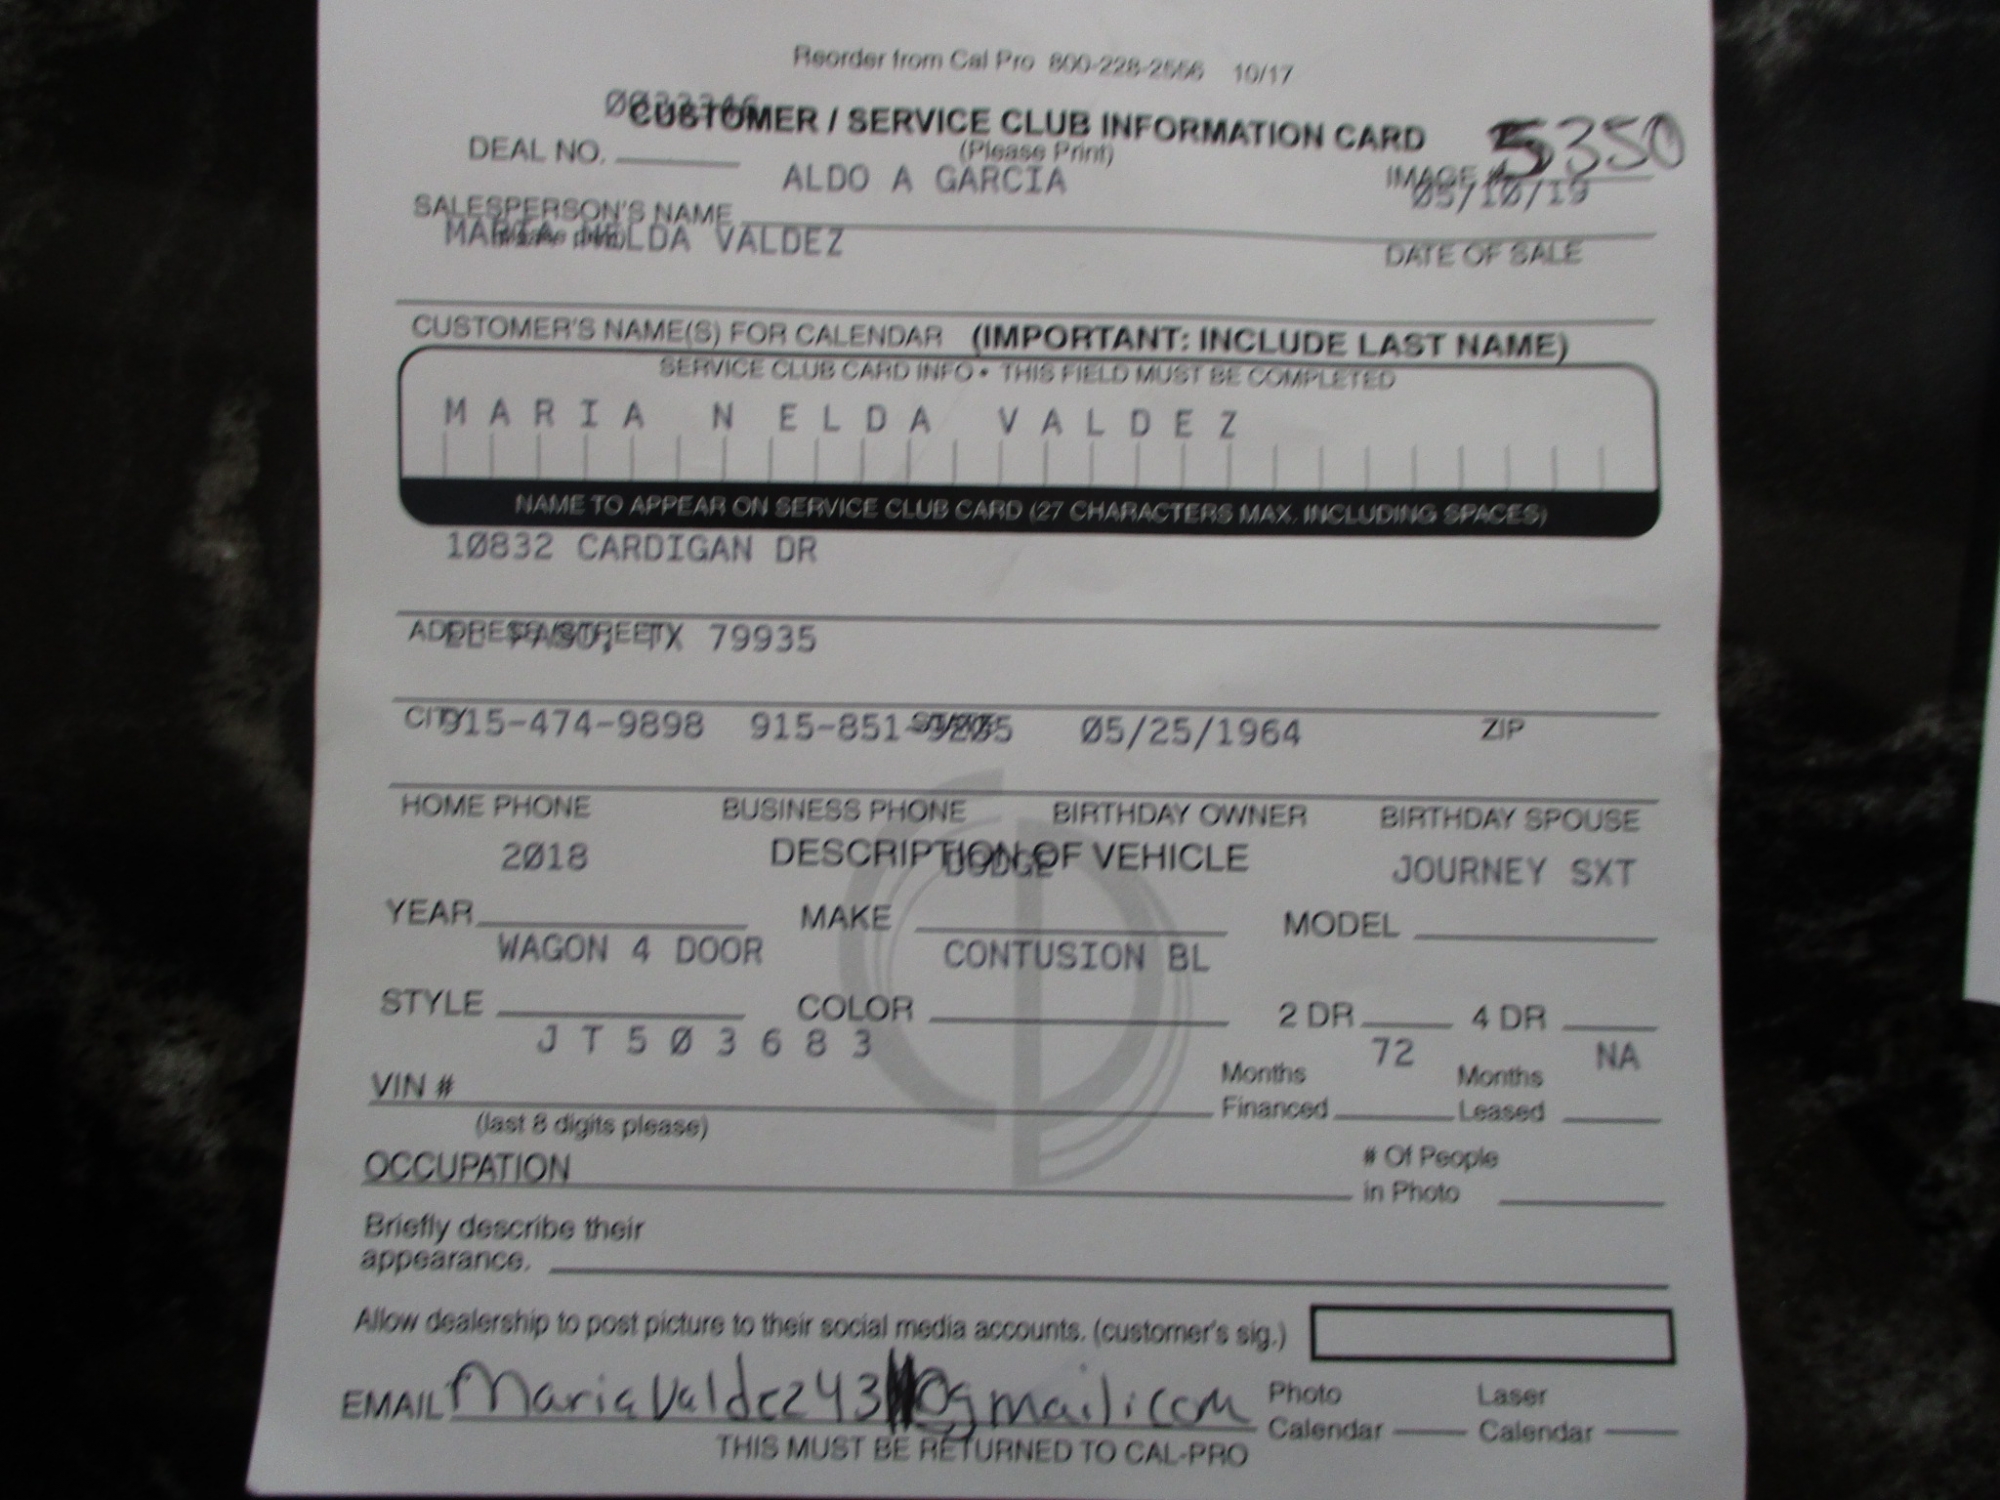 Reorder from Cal Pro 800-228-2556 10/17
CUSTOMER / SERVICE CLUB INFORMATION CARD
5350
DEAL NO.
(Please Print)
IMAGE #
ALDO A GARCIA
05/10/19
SALESPERSON'S NAME
MARIA NELDA VALDEZ
DATE OF SALE
CUSTOMER'S NAME(S) FOR CALENDAR (IMPORTANT: INCLUDE LAST NAME)
SERVICE CLUB CARD INFO • THIS FIELD MUST BE COMPLETED
MARIA N ELDA VALDEZ
NAME TO APPEAR ON SERVICE CLUB CARD (27 CHARACTERS MAX. INCLUDING SPACES)
10832 CARDIGAN DR
ADDRESS/STREET
EL PASO, TX 79935
CITY
ZIP
915-474-9898 915-851- 05/25/1964
HOME PHONE BUSINESS PHONE BIRTHDAY OWNER BIRTHDAY SPOUSE
DESCRIPTION OF VEHICLE
2018 DODGE JOURNEY SXT
YEAR MAKE MODEL
WAGON 4 DOOR CONTUSION BL
STYLE COLOR 2 DR 4 DR
JT503683 72 NA
VIN # Months Financed Months Leased
(last 8 digits please)
OCCUPATION # Of People in Photo
Briefly describe their
appearance.
Allow dealership to post picture to their social media accounts. (customer's sig.)
EMAIL MariaValdez43@gmail.com Photo Calendar Laser Calendar
THIS MUST BE RETURNED TO CAL-PRO